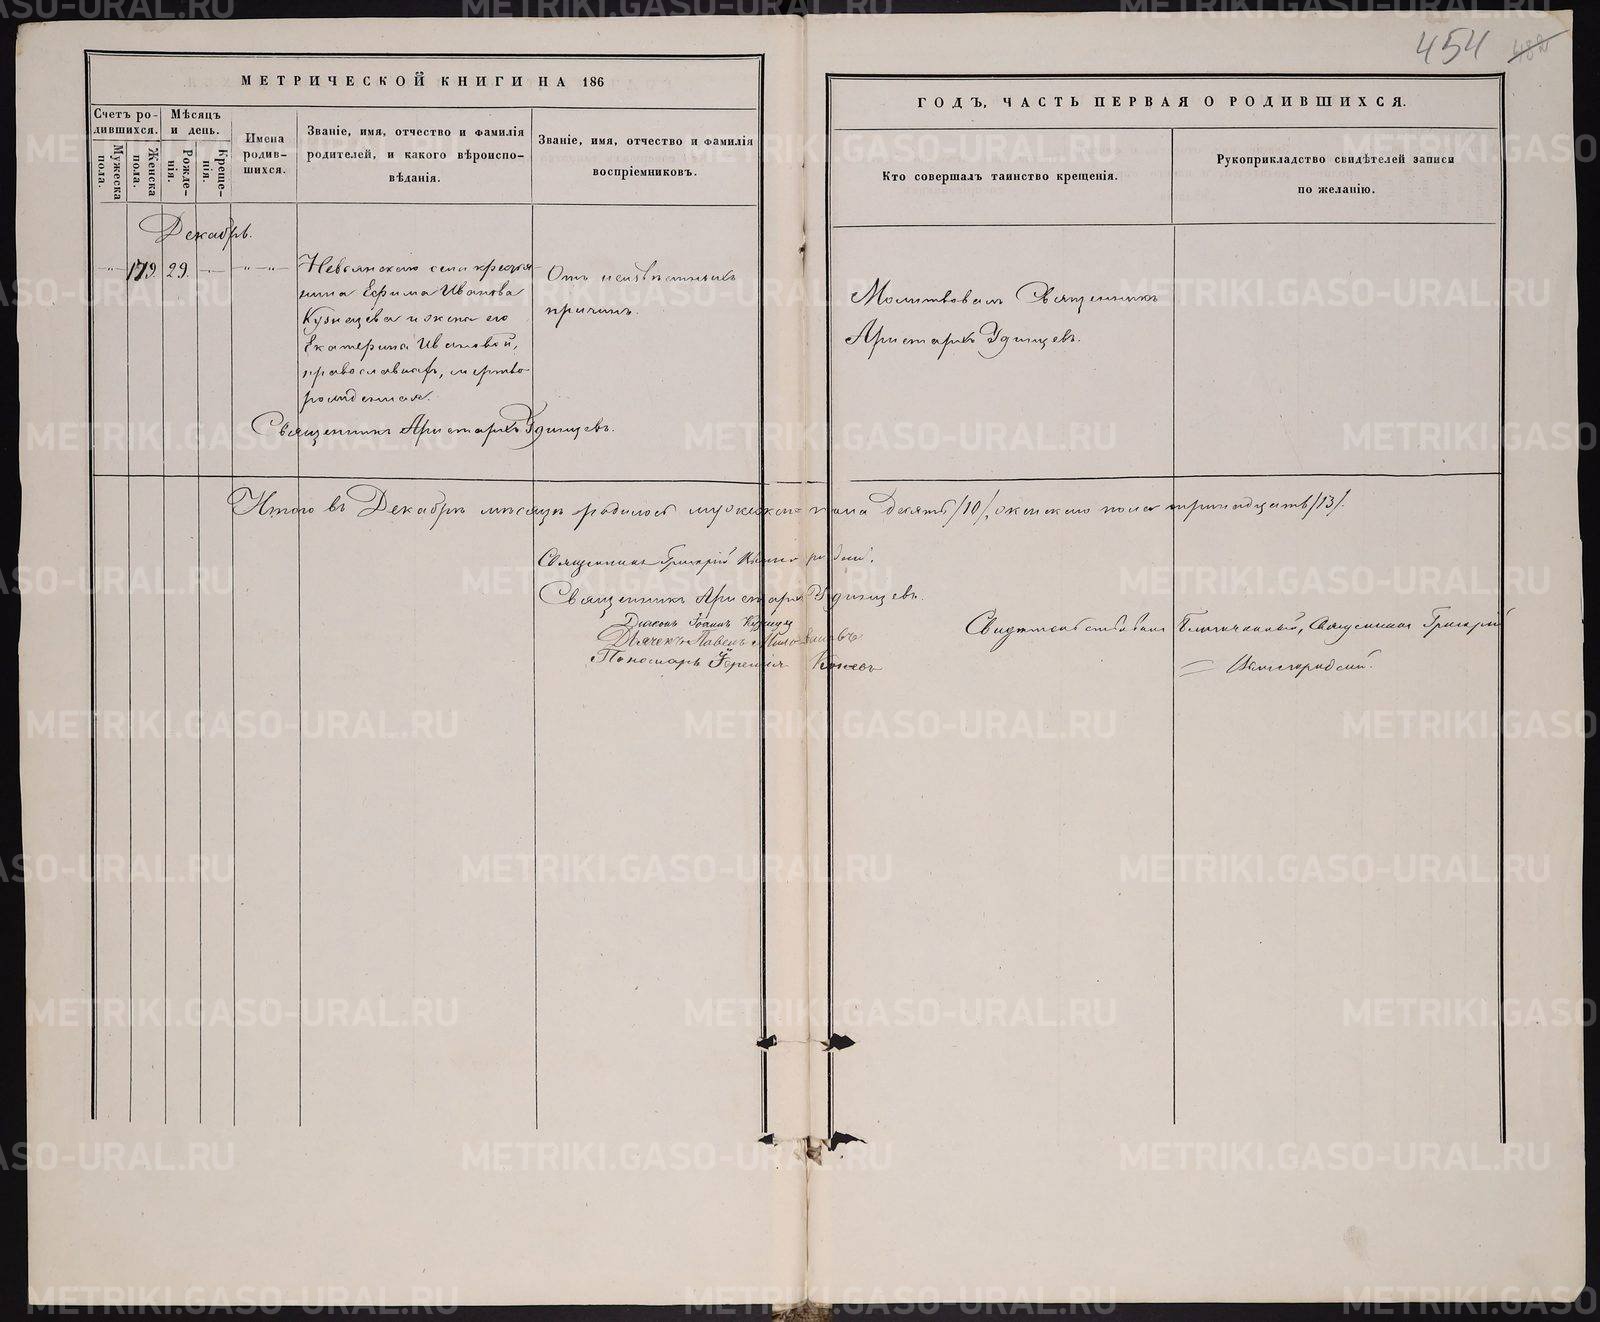 454 482
МЕТРИЧЕСКОЙ КНИГИ НА 186
ГОДЪ, ЧАСТЬ ПЕРВАЯ О РОДИВШИХСЯ.
Счетъ ро-
дившихся.
Мужеска
пола.
Женска
пола.
Мѣсяцъ
и день.
Рожде-
нія.
Креще-
нія.
Имена
родив-
шихся.
Званіе, имя, отчество и фамилія
родителей, и какого вѣроиспо-
вѣданія.
Званіе, имя, отчество и фамилія
воспріемниковъ.
Кто совершалъ таинство крещенія.
Рукоприкладство свидѣтелей записи
по желанію.
Декабрь.
179. 29.
Невьянскаго села крестья-
нина Ефима Иванова
Кузнецова и жена его
Екатерина Ивановой,
православнаго, мертво-
рожденная.
Отъ неизвѣстныхъ
причинъ.
Молитвовалъ Священникъ
Аристархъ Удинцевъ.
Священникъ Аристархъ Удинцевъ.
Итого въ Декабрѣ мѣсяцѣ родилось мужеска пола десять /10/, женскаго пола тринадцать /13/.
Священникъ Григорій
Священникъ Аристархъ Удинцевъ.
Діаконъ Іоаннъ
Дьячекъ Павелъ
Пономарь
Свидѣтельствовалъ Благочинный, Священникъ Григорій
METRIKI.GASO-URAL.RU